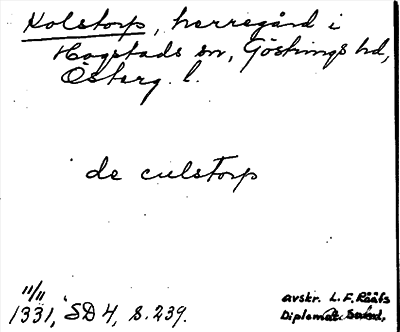 Kolstorp, herregård i
Hogstads sn, Göstrings hd,
Österg. l.
de culstorp
11/11
1331, SD 4, s. 239.
avskr. L. F. Rääfs
Diplomat.